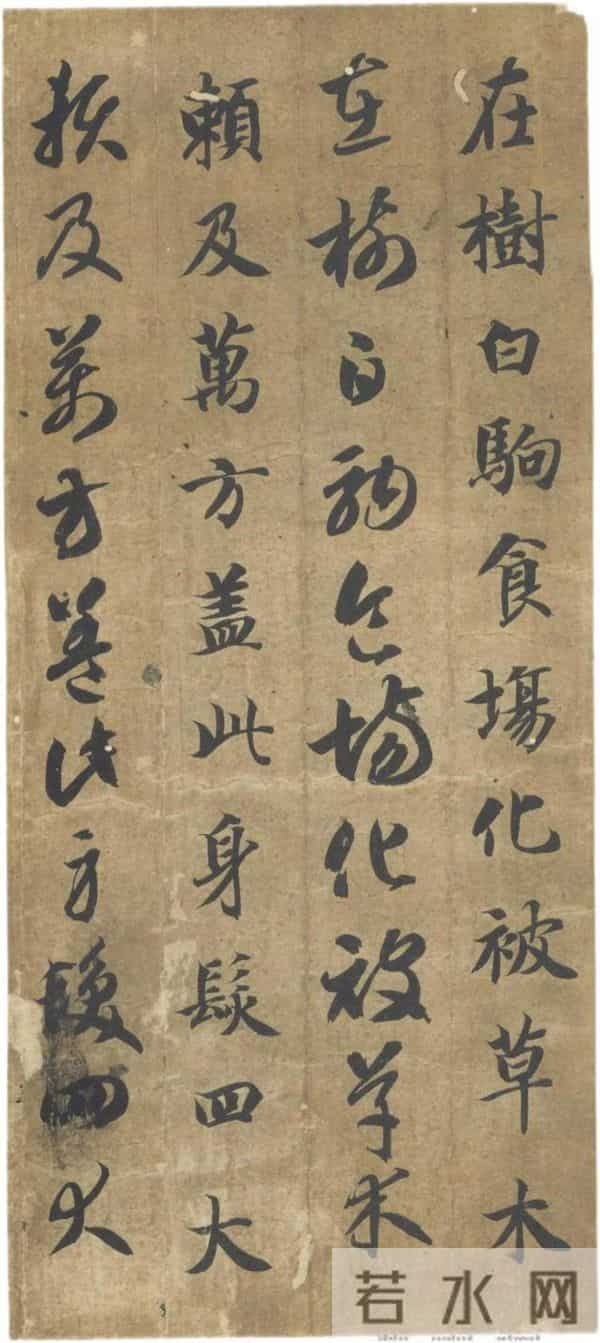 在樹白駒食場化被草木
在樹白駒食場化被草木
賴及萬方蓋此身髮四大
賴及萬方蓋此身髮四大
若水网